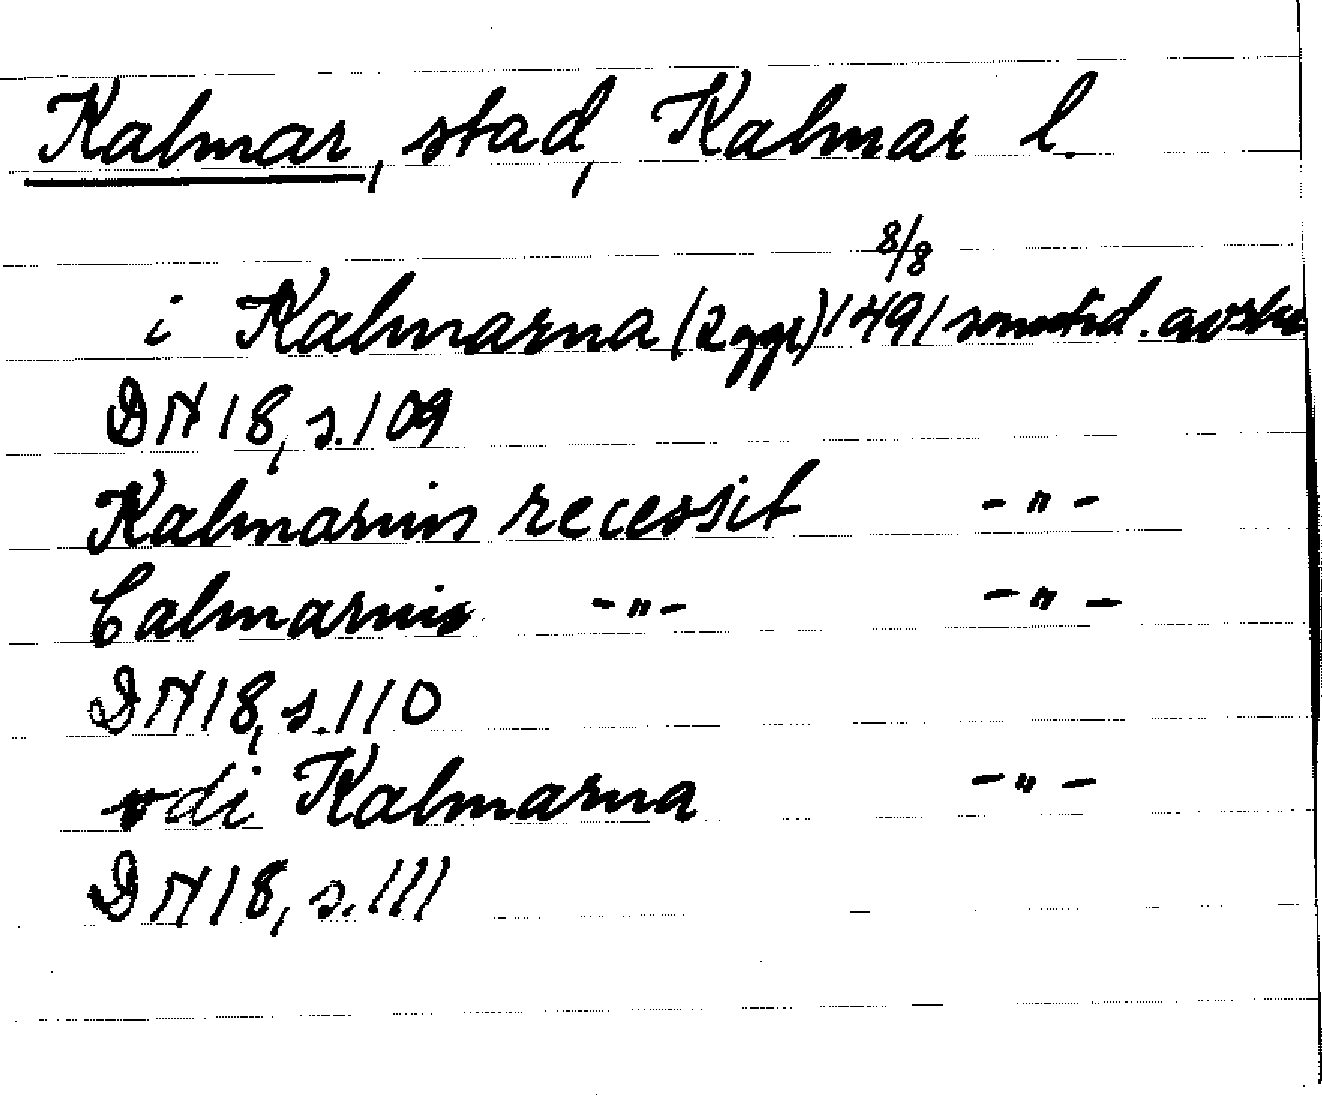 Kalmar, stad, Kalmar l.
8/8
i Kalmarna (2 ggr) 1491 samtid. avskr
DN 18, s. 109
Kalmarnis recessit -"-
Calmarnis -"- -"-
DN 18, s. 110
vdi Kalmarna -"-
DN 18, s. 111